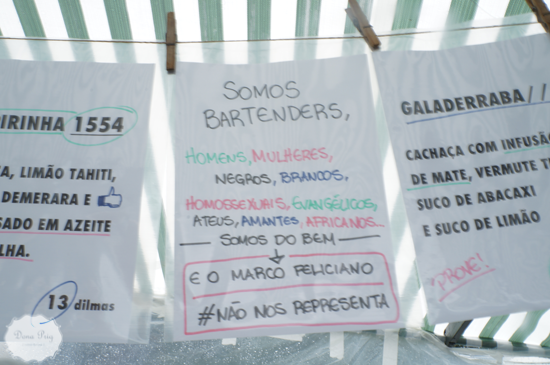 IRINHA 1554
A, LIMÃO TAHITI,
DEMERARA E
SADO EM AZEITE
LHA.
13 dilmas
SOMOS
BARTENDERS,
HOMENS, MULHERES,
NEGROS, BRANCOS,
HOMOSSEXUAIS, EVANGÉLICOS,
ATEUS, AMANTES, AFRICANOS...
SOMOS DO BEM
E O MARCO FELICIANO
#NÃO NOS REPRESENTA
GALADERRABA //
CACHAÇA COM INFUSÃ
DE MATE, VERMUTE T
SUCO DE ABACAXI
E SUCO DE LIMÃO
PROVE!